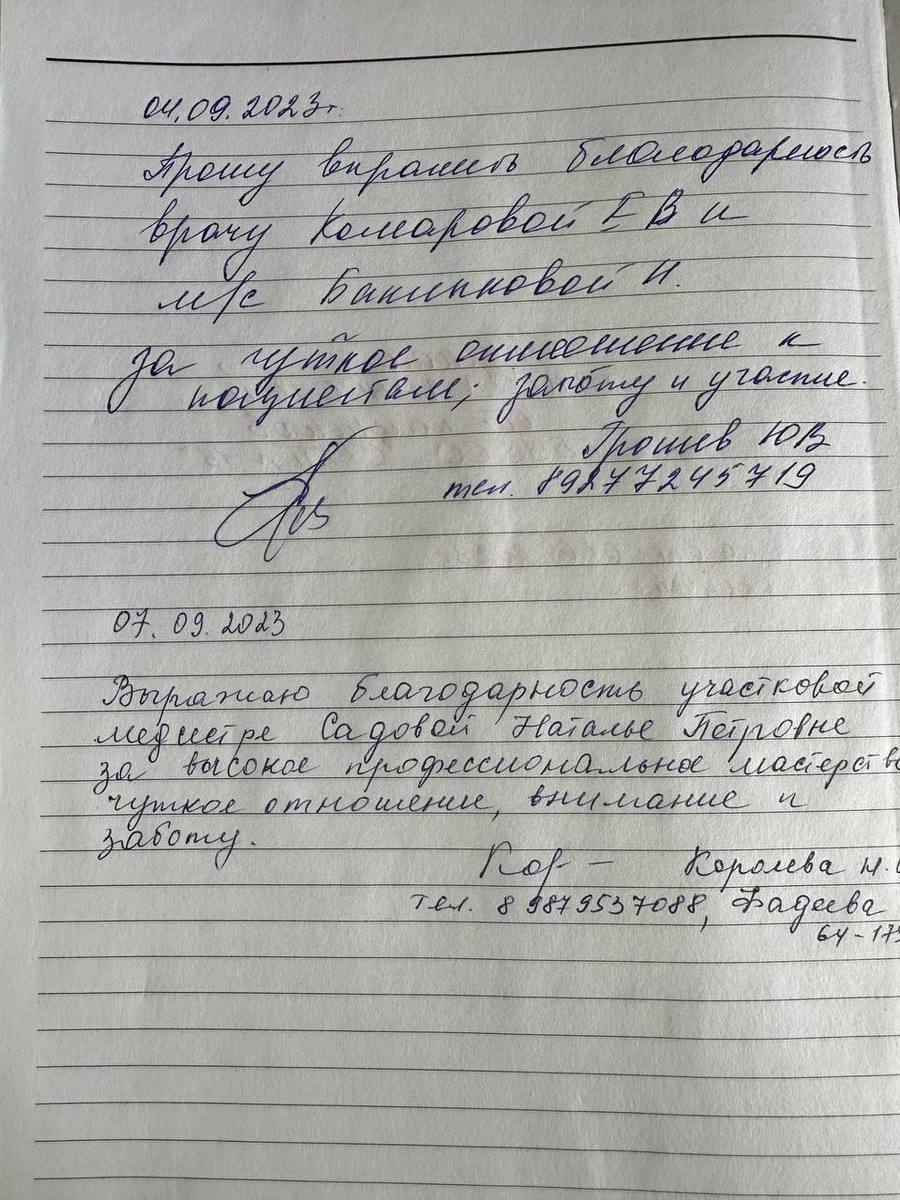 04.09.2023г.
Прошу выразить благодарность
врачу Комаровой Е В и
м/с
за чуткое отношение к
пациентам; заботу и участие.
Грошев ЮВ
тел. 89277245719
07.09.2023
Выражаю благодарность участковой
медсестре Садовой Наталье Петровне
за высокое профессиональное мастерство
чуткое отношение, внимание и
заботу.
Кор- Королева Н.
тел. 89879537088, Фадеева
64-173